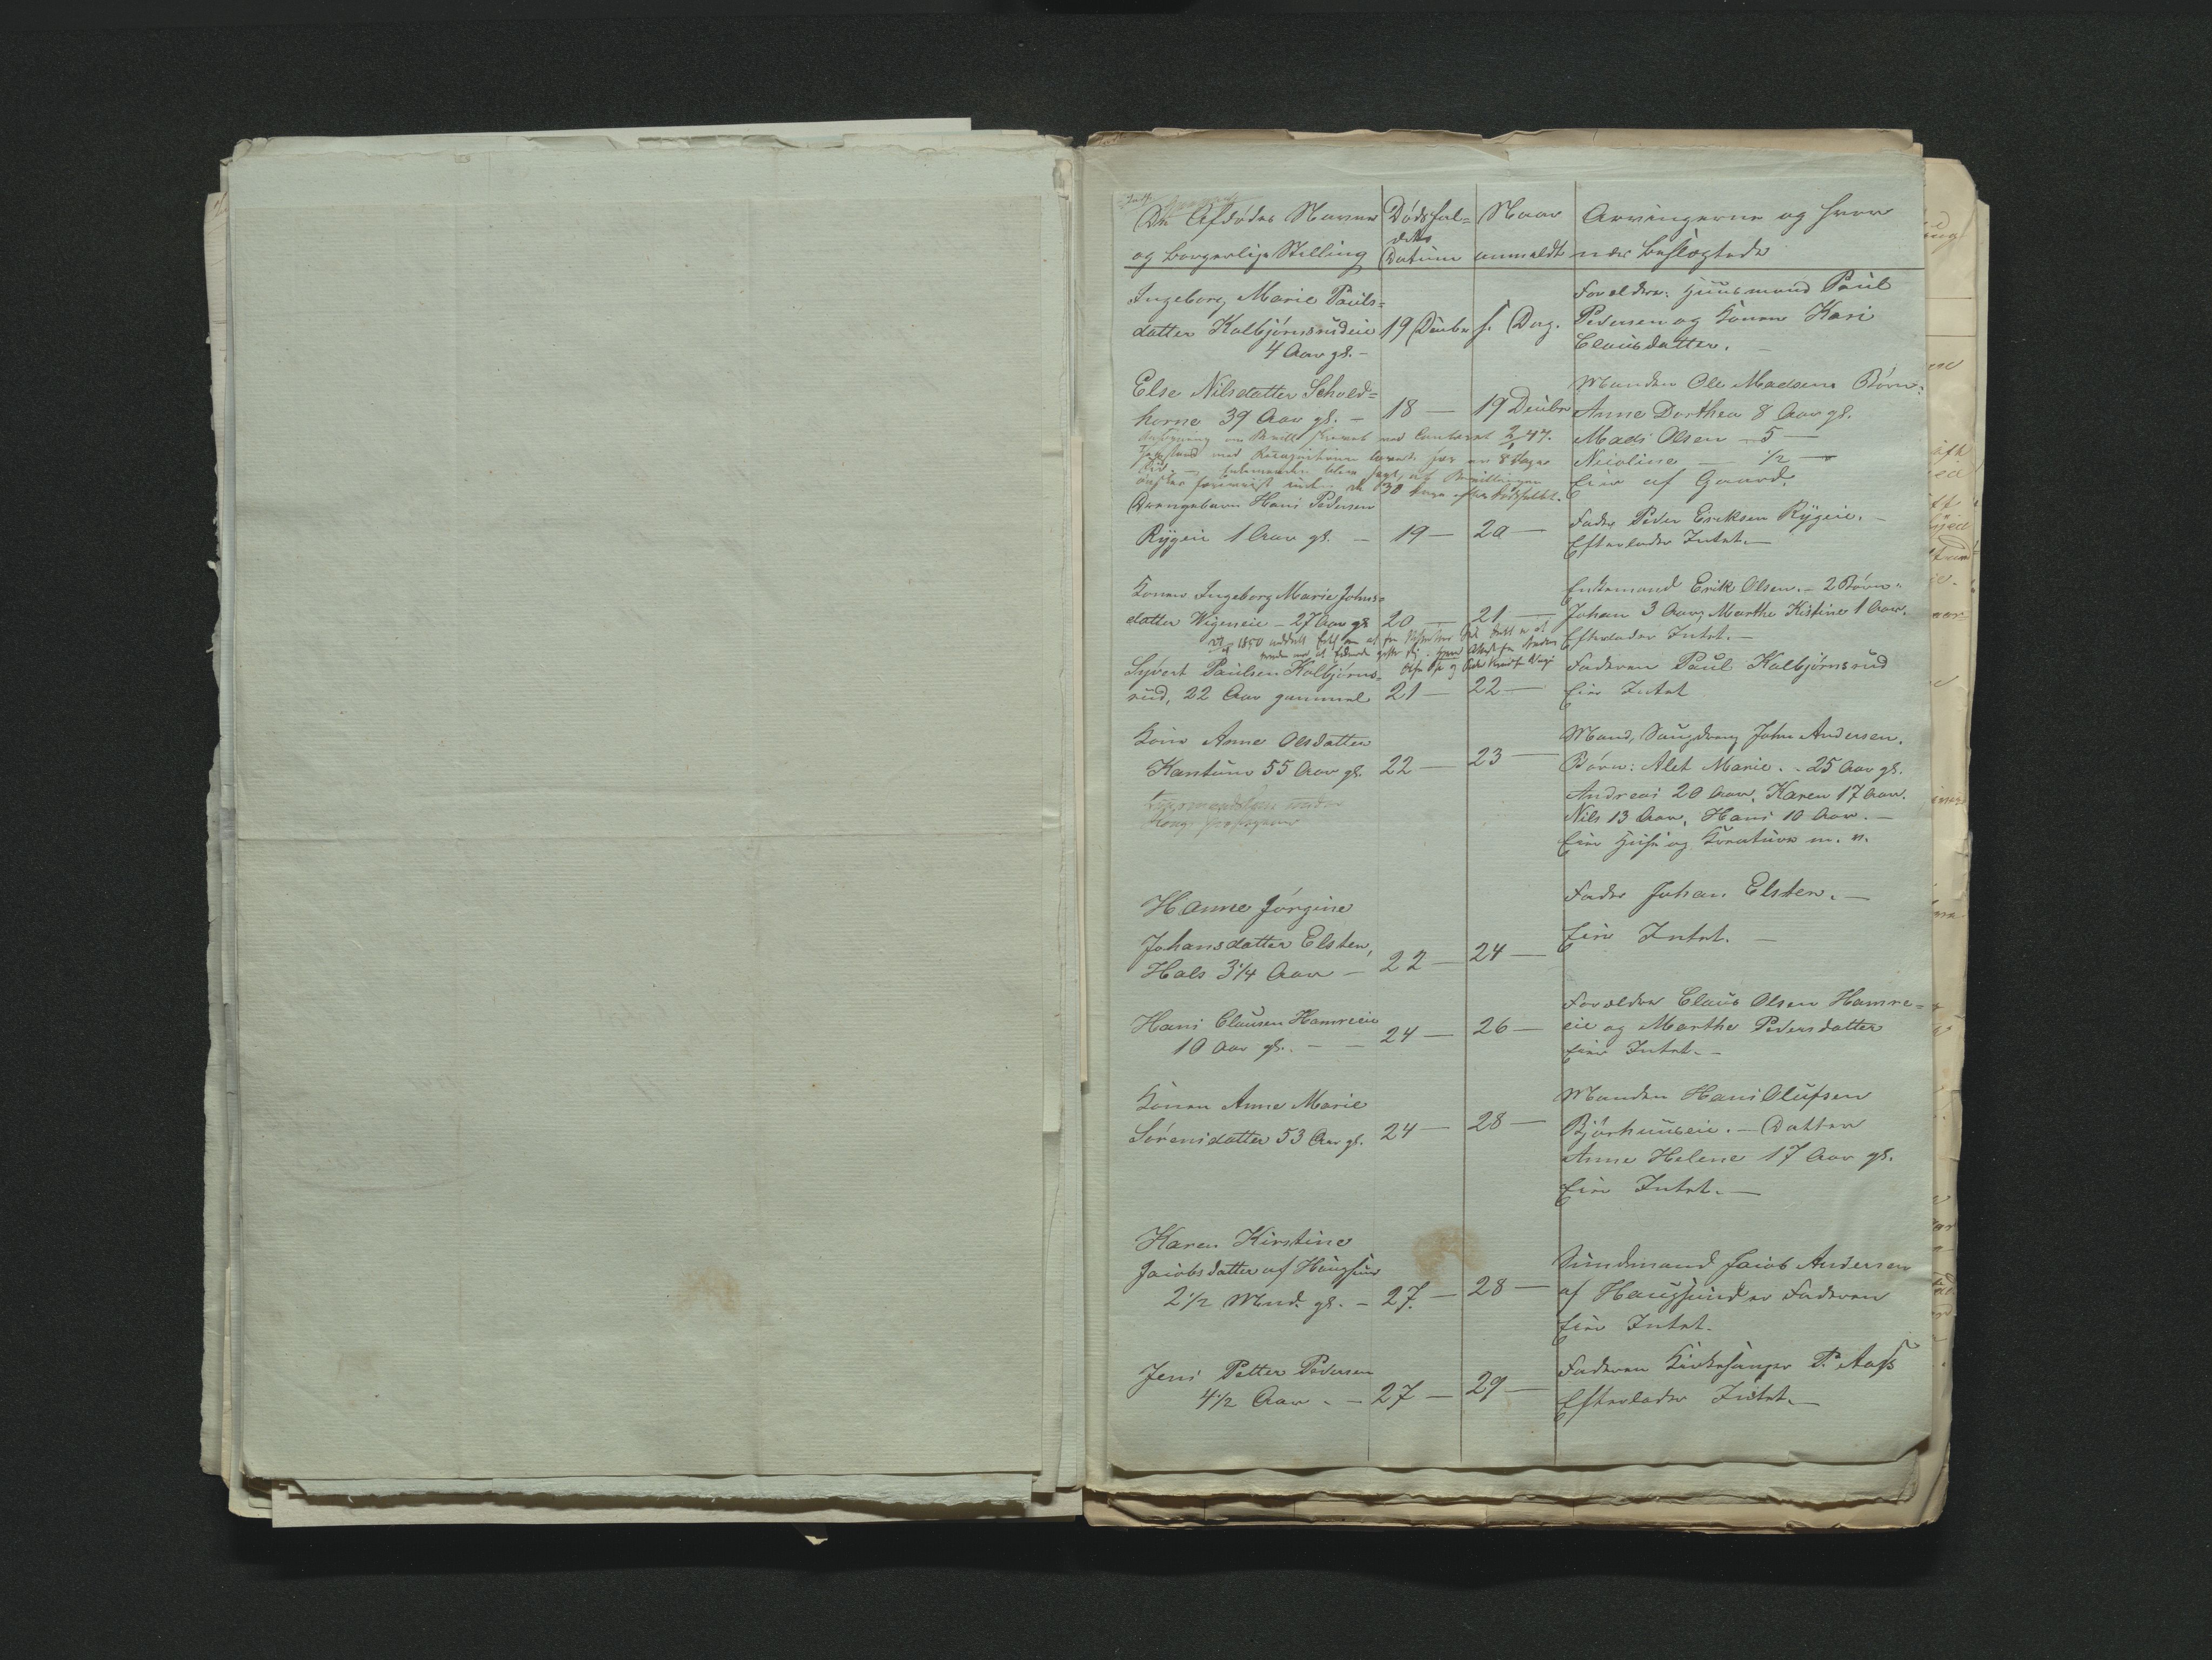 De Afdødes Navne Dødsfal= Naar Arvingerne og hvor
dets
og borgerlige Stilling Datum anmeldt nær beslægtede
Ingeborg Marie Pauls= Forældre: Huusmand Paul
datter Kolbjørnsrudeie 19 Decbr s. Dag. Pedersen og Konen Kari
4 Aar gl. – Clausdatter. –
Else Nilsdatter Schold= Manden Ole Madsen Børn:
horne 39 Aar gl. – 18 – 19 Decbr Anne Dorthea 8 Aar gl.
Mads Olsen – 5 –
Nicoline – 1/2 –
Eier af Gaard.
Drengebarn Hans Pedersen
Rygeie 1 Aar gl. – 19 – 20 – Fader Peder Eriksen Rygeie. –
Efterlader Intet. –
Konen Ingeborg Marie Johns= Enkemand Erik Olsen. – 2 Børn:
datter Wigeneie – 27 Aar gl 20 – 21 – Johan 3 Aar, Marthe Kistine 1 Aar.
Efterlader Intet. –
Syvert Paulsen Kolbjørns= Faderen Paul Kolbjørnsrud
rud, 22 Aar gammel 21 – 22 – Eier Intet
Kone Anne Olsdatter Mand, Saugdreng John Andersen.
Kantum 55 Aar gl. 22 – 23 – Børn: Alet Marie. – 25 Aar gl.
Andreas 20 Aar, Karen 17 Aar.
Nils 13 Aar, Hans 10 Aar. –
Eier Huse og Kreature m. v.
Hanne Jørgine Fader Johan Elster. –
Johansdatter Elster, Eier Intet. –
Hals 3 1/4 Aar – 22 – 24 –
Hans Clausen Hamreeie Forældre Claus Olsen Hamre=
10 Aar gl. – – 24 – 26 – eie og Marthe Pedersdatter
Eier Intet. –
Konen Anne Marie Manden Hans Olufsen
Sørensdatter 53 Aar gl. 24 – 28 – Bjørhuuseie. – Datter
Anne Helene 17 Aar gl.
Eier Intet. –
Karen Kirstine
Jacobsdatter af Haugsund Jacob Andersen
2 1/2 Mnd. gl. – 27. – 28 – af Haugsund er Faderen
Eier Intet.
Jens Petter Pedersen Faderen Kirkesanger P. Aass
4 1/2 Aar – – 27 – 29 – Efterlader Intet. –